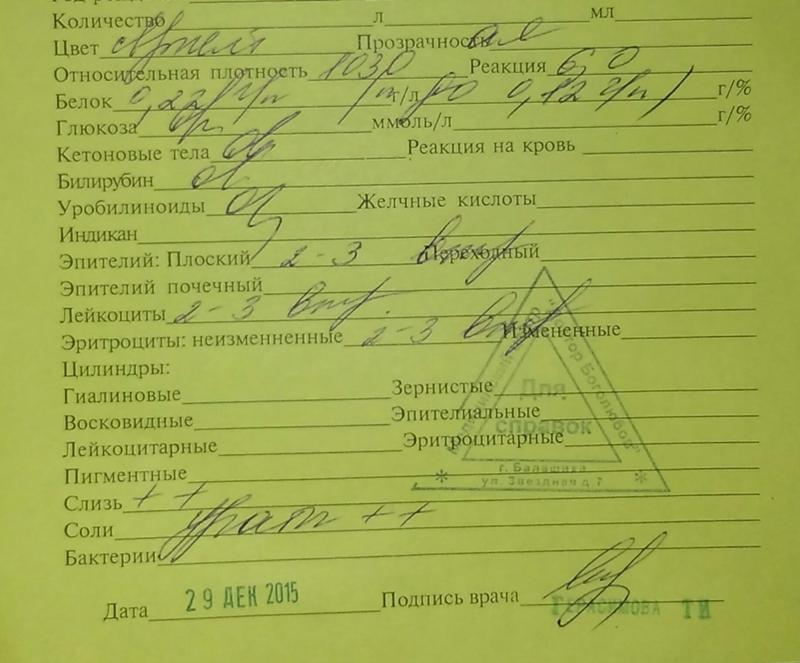 Количество л мл
Цвет Прозрачность
Относительная плотность 1030 Реакция 6,0
Белок 0,22 г/л г/л 0,12 г/л) г/%
Глюкоза ммоль/л г/%
Кетоновые тела Реакция на кровь
Билирубин
Уробилиноиды Желчные кислоты
Индикан
Эпителий: Плоский 2-3 Переходный
Эпителий почечный
Лейкоциты 2-3
Эритроциты: неизмненные 2-3 Измененные
Цилиндры:
Гиалиновые Зернистые
Восковидные Эпителиальные
Лейкоцитарные Эритроцитарные
Пигментные
Слизь ++
Соли ураты ++
Бактерии
Дата 29 ДЕК 2015 Подпись врача
ГЕРАСИМОВА ТИ
Для
справок
г. Балашиха
ул. Звездная д.7